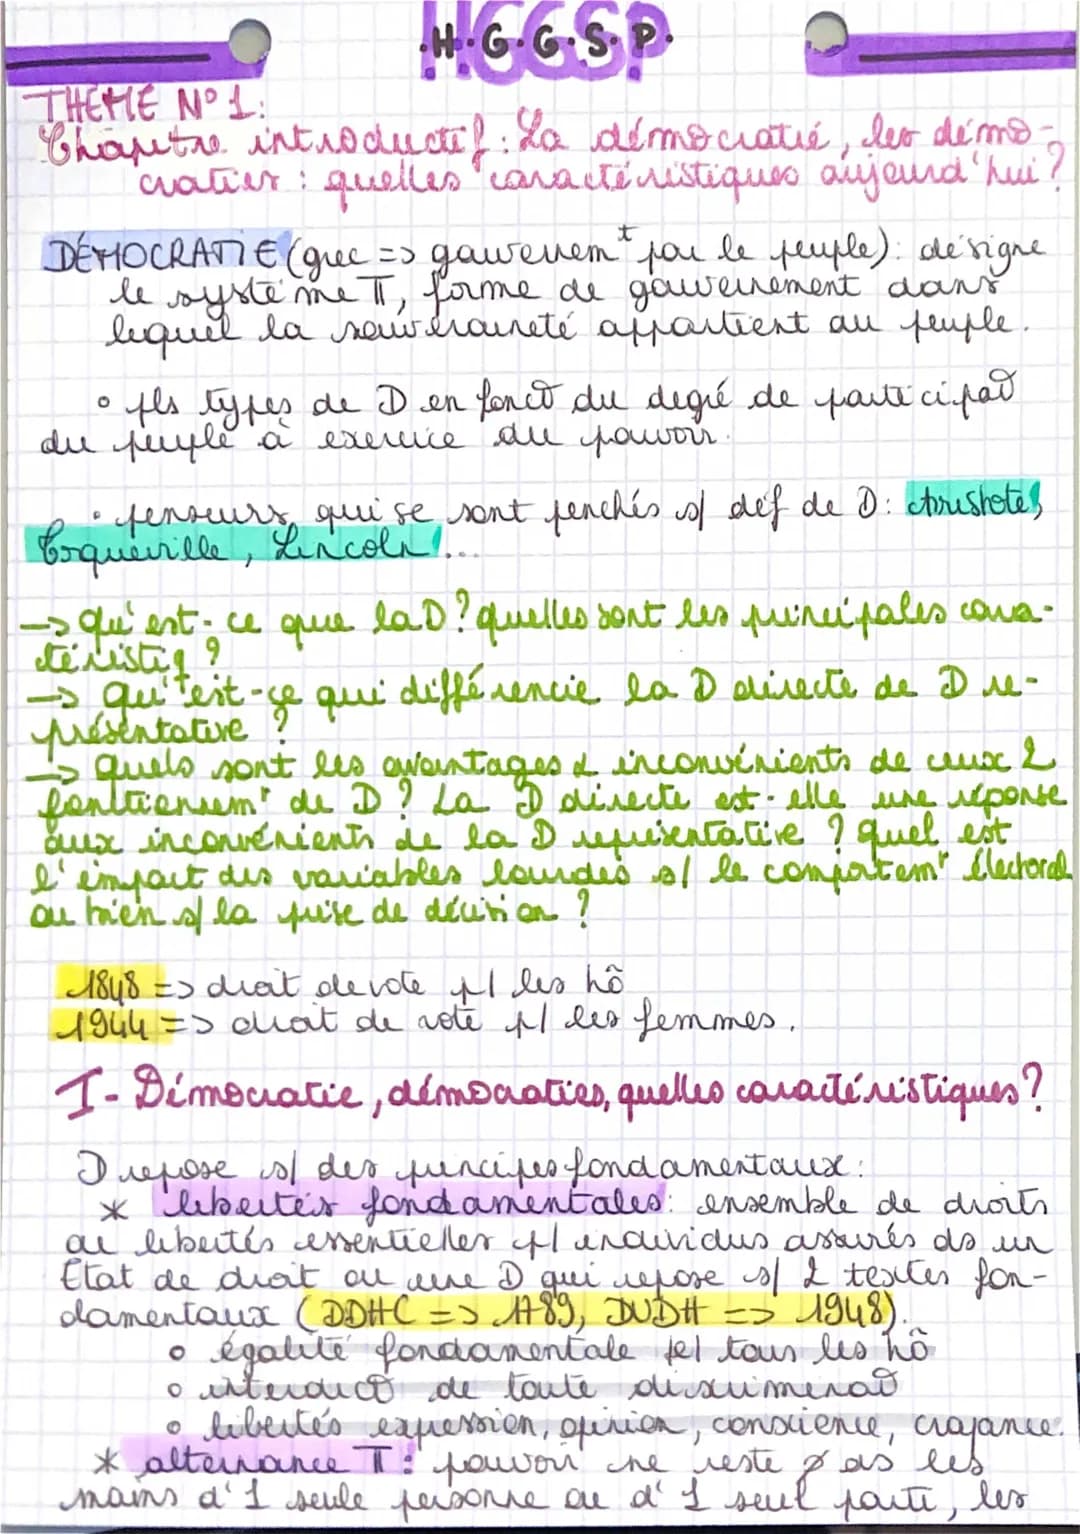 H.G.G.S.P.
THEME N° 1:
Chapitre introductif : La démocratie, les démo-
craties : quelles caractéristiques aujourd'hui ?
DÉMOCRATIE (grec => gouvernemt par le peuple): désigne
le système π, forme de gouvernement dans
lequel la souveraineté appartient au peuple.
° pls types de D en fonct° du degré de participat°
du peuple à exercice du pouvoir.
° penseurs qui se sont penchés s/ déf de D: Aristote,
Tocqueville, Lincoln...
-> qu'est-ce que la D ? quelles sont les principales carac-
téristiq ?
-> qu'est-ce qui différencie la D directe de D re-
présentative ?
-> quels sont les avantages & inconvénients de ceux 2
fonctionnemt de D ? La D directe est-elle une réponse
aux inconvénients de la D représentative ? quel est
l'impact des variables lourdes s/ le comportemt électoral
ou bien s/ la prise de décision ?
1848 => droit de vote p/ les hô
1944 => droit de vote p/ les femmes.
I- Démocratie, démocraties, quelles caractéristiques ?
D repose s/ des principes fondamentaux:
* libertés fondamentales: ensemble de droits
et libertés essentielles p/ individus assurés ds un
État de droit ou une D qui repose s/ 2 textes fon-
damentaux (DDHC => 1789, DUDH => 1948).
° égalité fondamentale p/ tous les hô
° interdict° de toute discriminat°
° libertés expression, opinion, conscience, croyance.
* alternance π: pouvoir ne reste pas ds les
mains d'1 seule personne ou d'1 seul parti, les